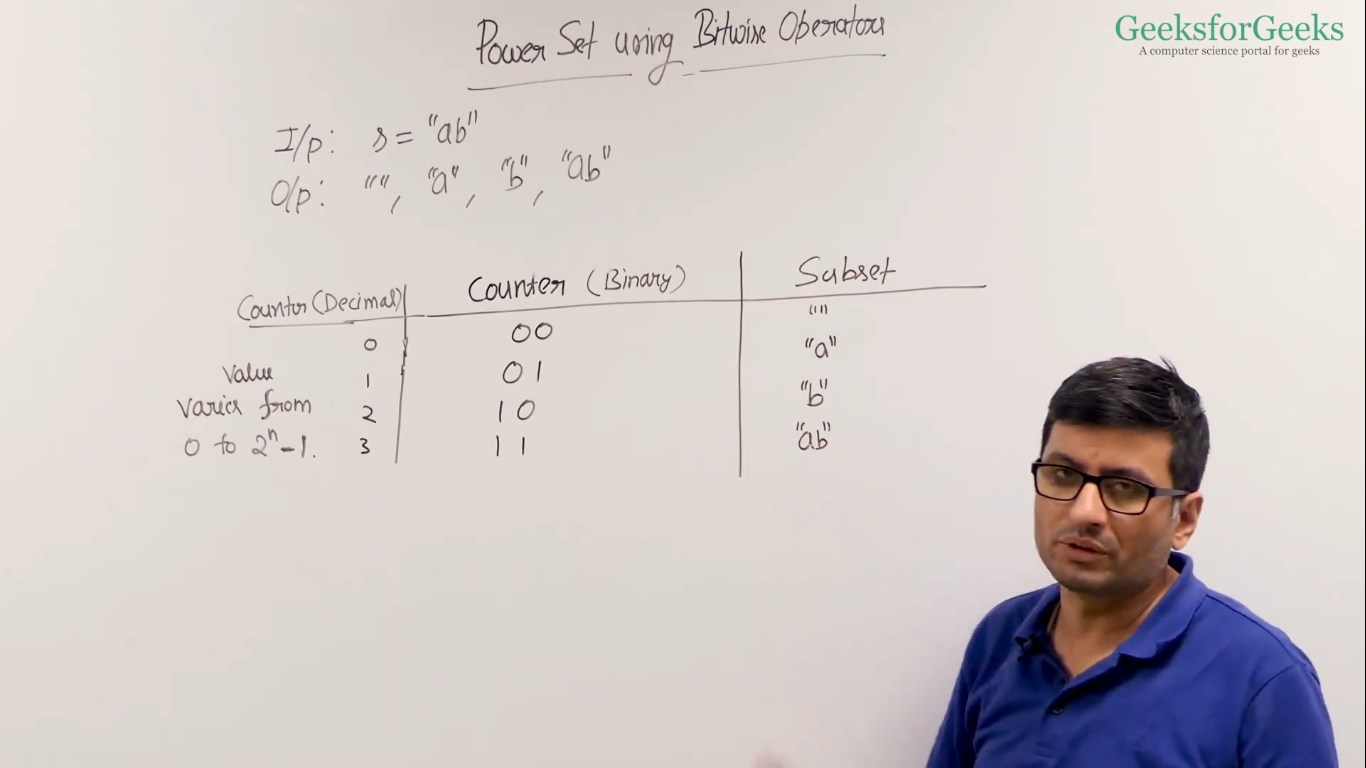 GeeksforGeeks
A computer science portal for geeks
Power Set using Bitwise Operators
I/p: s = "ab"
O/p: "", "a", "b", "ab"
Counter (Decimal) Counter (Binary) Subset
0 00 ""
Value 1 01 "a"
Varies from 2 10 "b"
0 to 2ⁿ-1. 3 11 "ab"